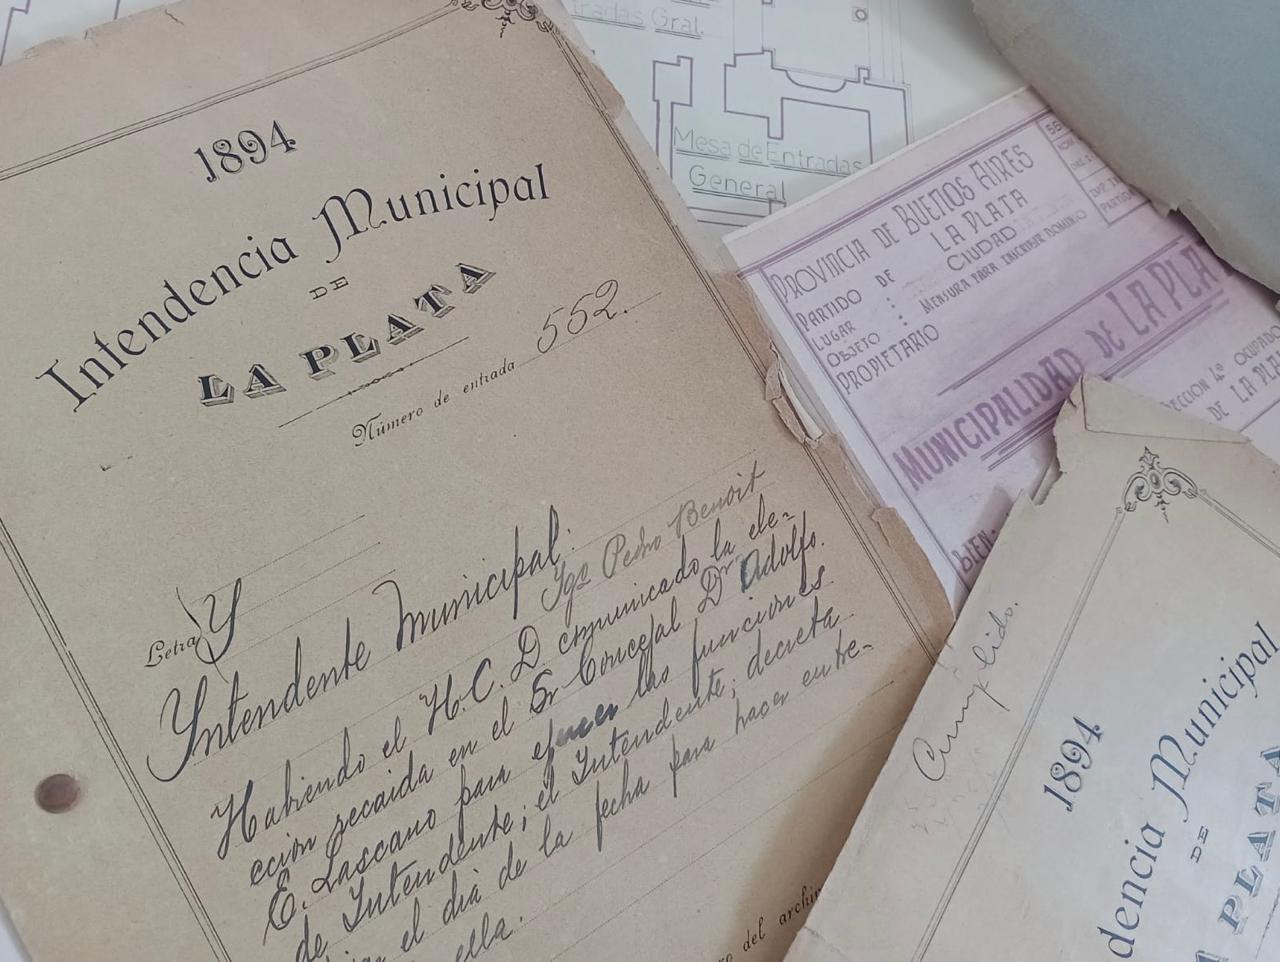 1894
Intendencia Municipal
DE
LA PLATA
Número de entrada 552.
Letra Y
Intendente Municipal:
Pedro Benoit
Habiendo el H. C. D comunicado la ele-
ccion recaida en el Sr Concejal Dr Adolfo.
E. Lascano para ejercer las funciones
de Intendente; el Intendente, decreta
el dia de la fecha para hacer entre-
ella.
tradas Gral.
Mesa de Entradas
General
PROVINCIA DE BUENOS AIRES
PARTIDO DE LA PLATA
LUGAR : CIUDAD
OBJETO : MENSURA PARA INSCRIBIR DOMINIO
PROPIETARIO
MUNICIPALIDAD DE LA PLA
ECCION 4º OCUPADO
DE LA PLA
BIEN
Cumplido.
1894
dencia Municipal
DE
A PLATA
del archi